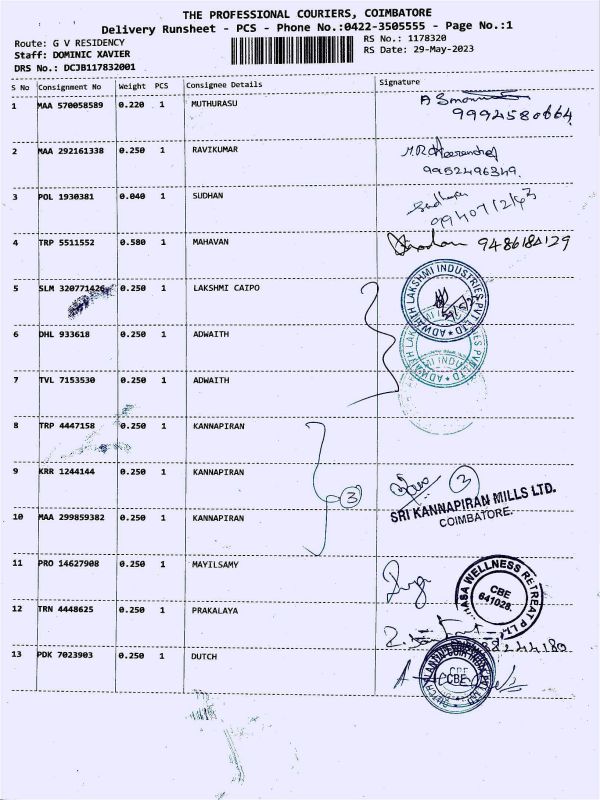 THE PROFESSIONAL COURIERS, COIMBATORE
Delivery Runsheet - PCS - Phone No.:0422-3505555 - Page No.:1
Route: G V RESIDENCY
RS No.: 1178320
Staff: DOMINIC XAVIER
RS Date: 29-May-2023
DRS No.: DCJB117832001
S No Consignment No Weight PCS Consignee Details Signature
1 MAA 570058589 0.220 1 MUTHURASU
9994580664
2 MAA 292161338 0.250 1 RAVIKUMAR
9952496349
3 POL 1930381 0.040 1 SUDHAN
4 TRP 5511552 0.580 1 MAHAVAN 9486184129
5 SLM 320771426 0.250 1 LAKSHMI CAIPO
ADWAITH LAKSHMI INDUSTRIES PVT LTD
6 DHL 933618 0.250 1 ADWAITH
7 TVL 7153530 0.250 1 ADWAITH
8 TRP 4447158 0.250 1 KANNAPIRAN
9 KRR 1244144 0.250 1 KANNAPIRAN
3
3
SRI KANNAPIRAN MILLS LTD.
COIMBATORE.
10 MAA 299859382 0.250 1 KANNAPIRAN
11 PRO 14627908 0.250 1 MAYILSAMY
WELLNESS RETREAT P LTD
CBE
641028.
12 TRN 4448625 0.250 1 PRAKALAYA
13 PDK 7023903 0.250 1 DUTCH
CBE